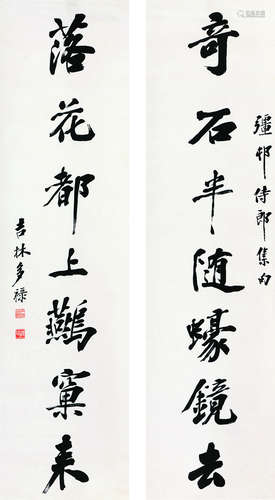 彊邨侍郎集句
奇石半随蠔鏡去
落花都上鷰窠來
吉林多祿